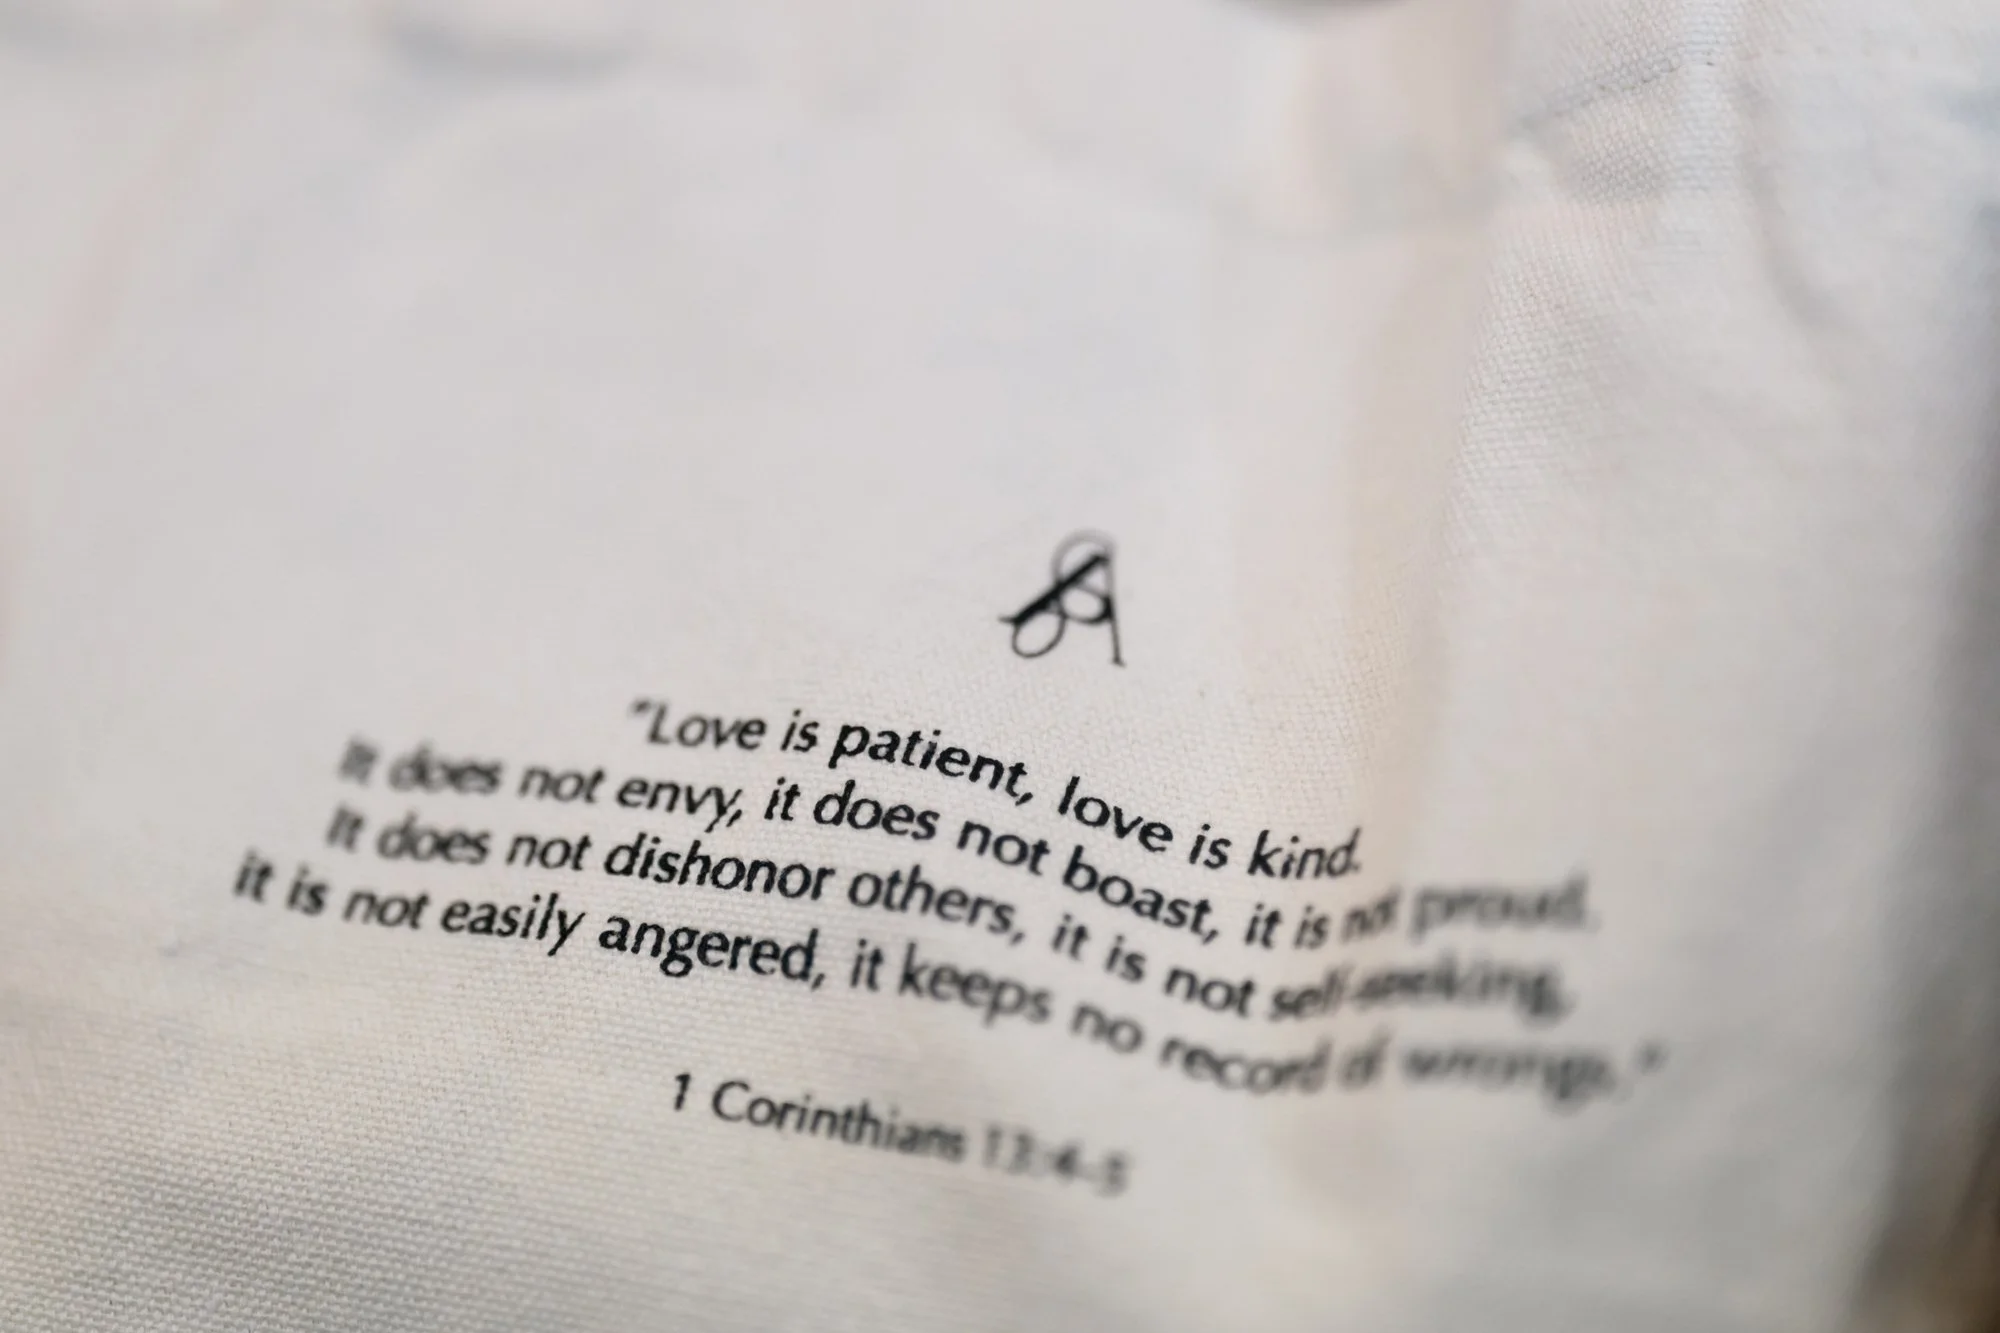 "Love is patient, love is kind.
It does not envy, it does not boast, it is not proud.
It does not dishonor others, it is not self-seeking,
it is not easily angered, it keeps no record of wrongs."
1 Corinthians 13:4-5